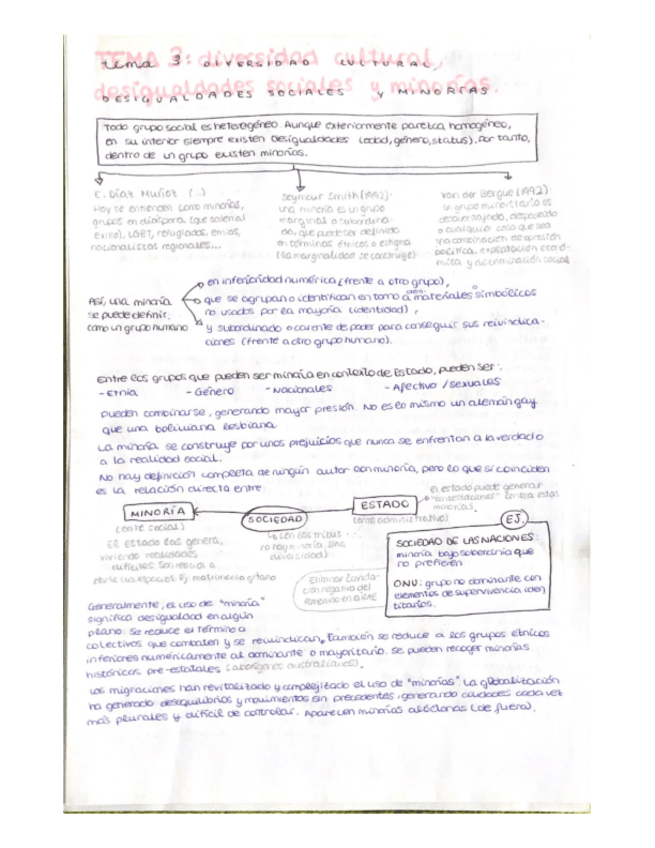 TEMA 3: diversidad cultural,
tema 3 DIVERSIDAD CULTURAL,
desigualdades sociales y minorías.
DESIGUALDADES SOCIALES Y MINORÍAS.
Todo grupo social es heterogéneo. Aunque exteriormente parezca homogéneo,
en su interior siempre existen desigualdades (edad, género, status). Por tanto,
dentro de un grupo existen minorías.
E. Díaz Muñoz (...)
Hoy se entienden como minorías,
grupos en diáspora (que salen al
exilio), LGBT, refugiados, etnias,
nacionalistas regionales...
Seymour Smith (1992).
una minoría es un grupo
marginal o subordina-
do, que puede ser definido
en términos étnicos o estigma
(la marginalidad se construye)
Van der Bergue (1992)
un grupo minoritario es
desventajado, desposeído
o cualquier cosa que sea
una combinación de opresión
política, explotación econó-
mica y discriminación social
Así, una minoría
se puede definir,
como un grupo humano
en inferioridad numérica (frente a otro grupo),
que se agrupan o identifican en torno a materiales simbólicos
no usados por la mayoría (identidad),
y subordinado o carente de poder para conseguir sus reivindica-
ciones (frente a otro grupo humano).
Entre los grupos que pueden ser minoría en contexto de Estado, pueden ser:
- Etnia - Género - Nacionales - Afectivo / sexuales
Pueden combinarse, generando mayor presión. No es lo mismo un alemán gay
que una boliviana lesbiana
La minoría se construye por unos prejuicios que nunca se enfrentan a la verdad o
a la realidad social.
No hay definición completa de ningún autor con minoría, pero lo que sí coinciden
es la relación directa entre:
MINORÍA
SOCIEDAD
ESTADO
(ente social)
El estado las genera,
viviendo realidades
especiales Ej. matrimonio gitano
(en las tribus
no hay minoría, sino
diversidad)
(ente administrativo)
El estado puede generar
contra estas
minorías.
EJ.
SOCIEDAD DE LAS NACIONES:
minoría bajo soberanía que
no prefieren
ONU: grupo no dominante con
elementos de supervivencia iden
titarios.
Eliminar
negativo del
femenino en la RAE
Generalmente, el uso de "minoría"
significa desigualdad en algún
plano. Se reduce el término a
colectivos que combaten y se reivindican. También se reduce a los grupos étnicos
inferiores numéricamente al dominante o mayoritario. Se pueden recoger minorías
históricas pre-estatales (aborígenes australianos).
Las migraciones han revitalizado y complejizado el uso de "minorías". La globalización
ha generado desequilibrios y movimientos sin precedentes, generando ciudades cada vez
más plurales y difícil de controlar. Aparecen minorías alóctonas (de fuera).